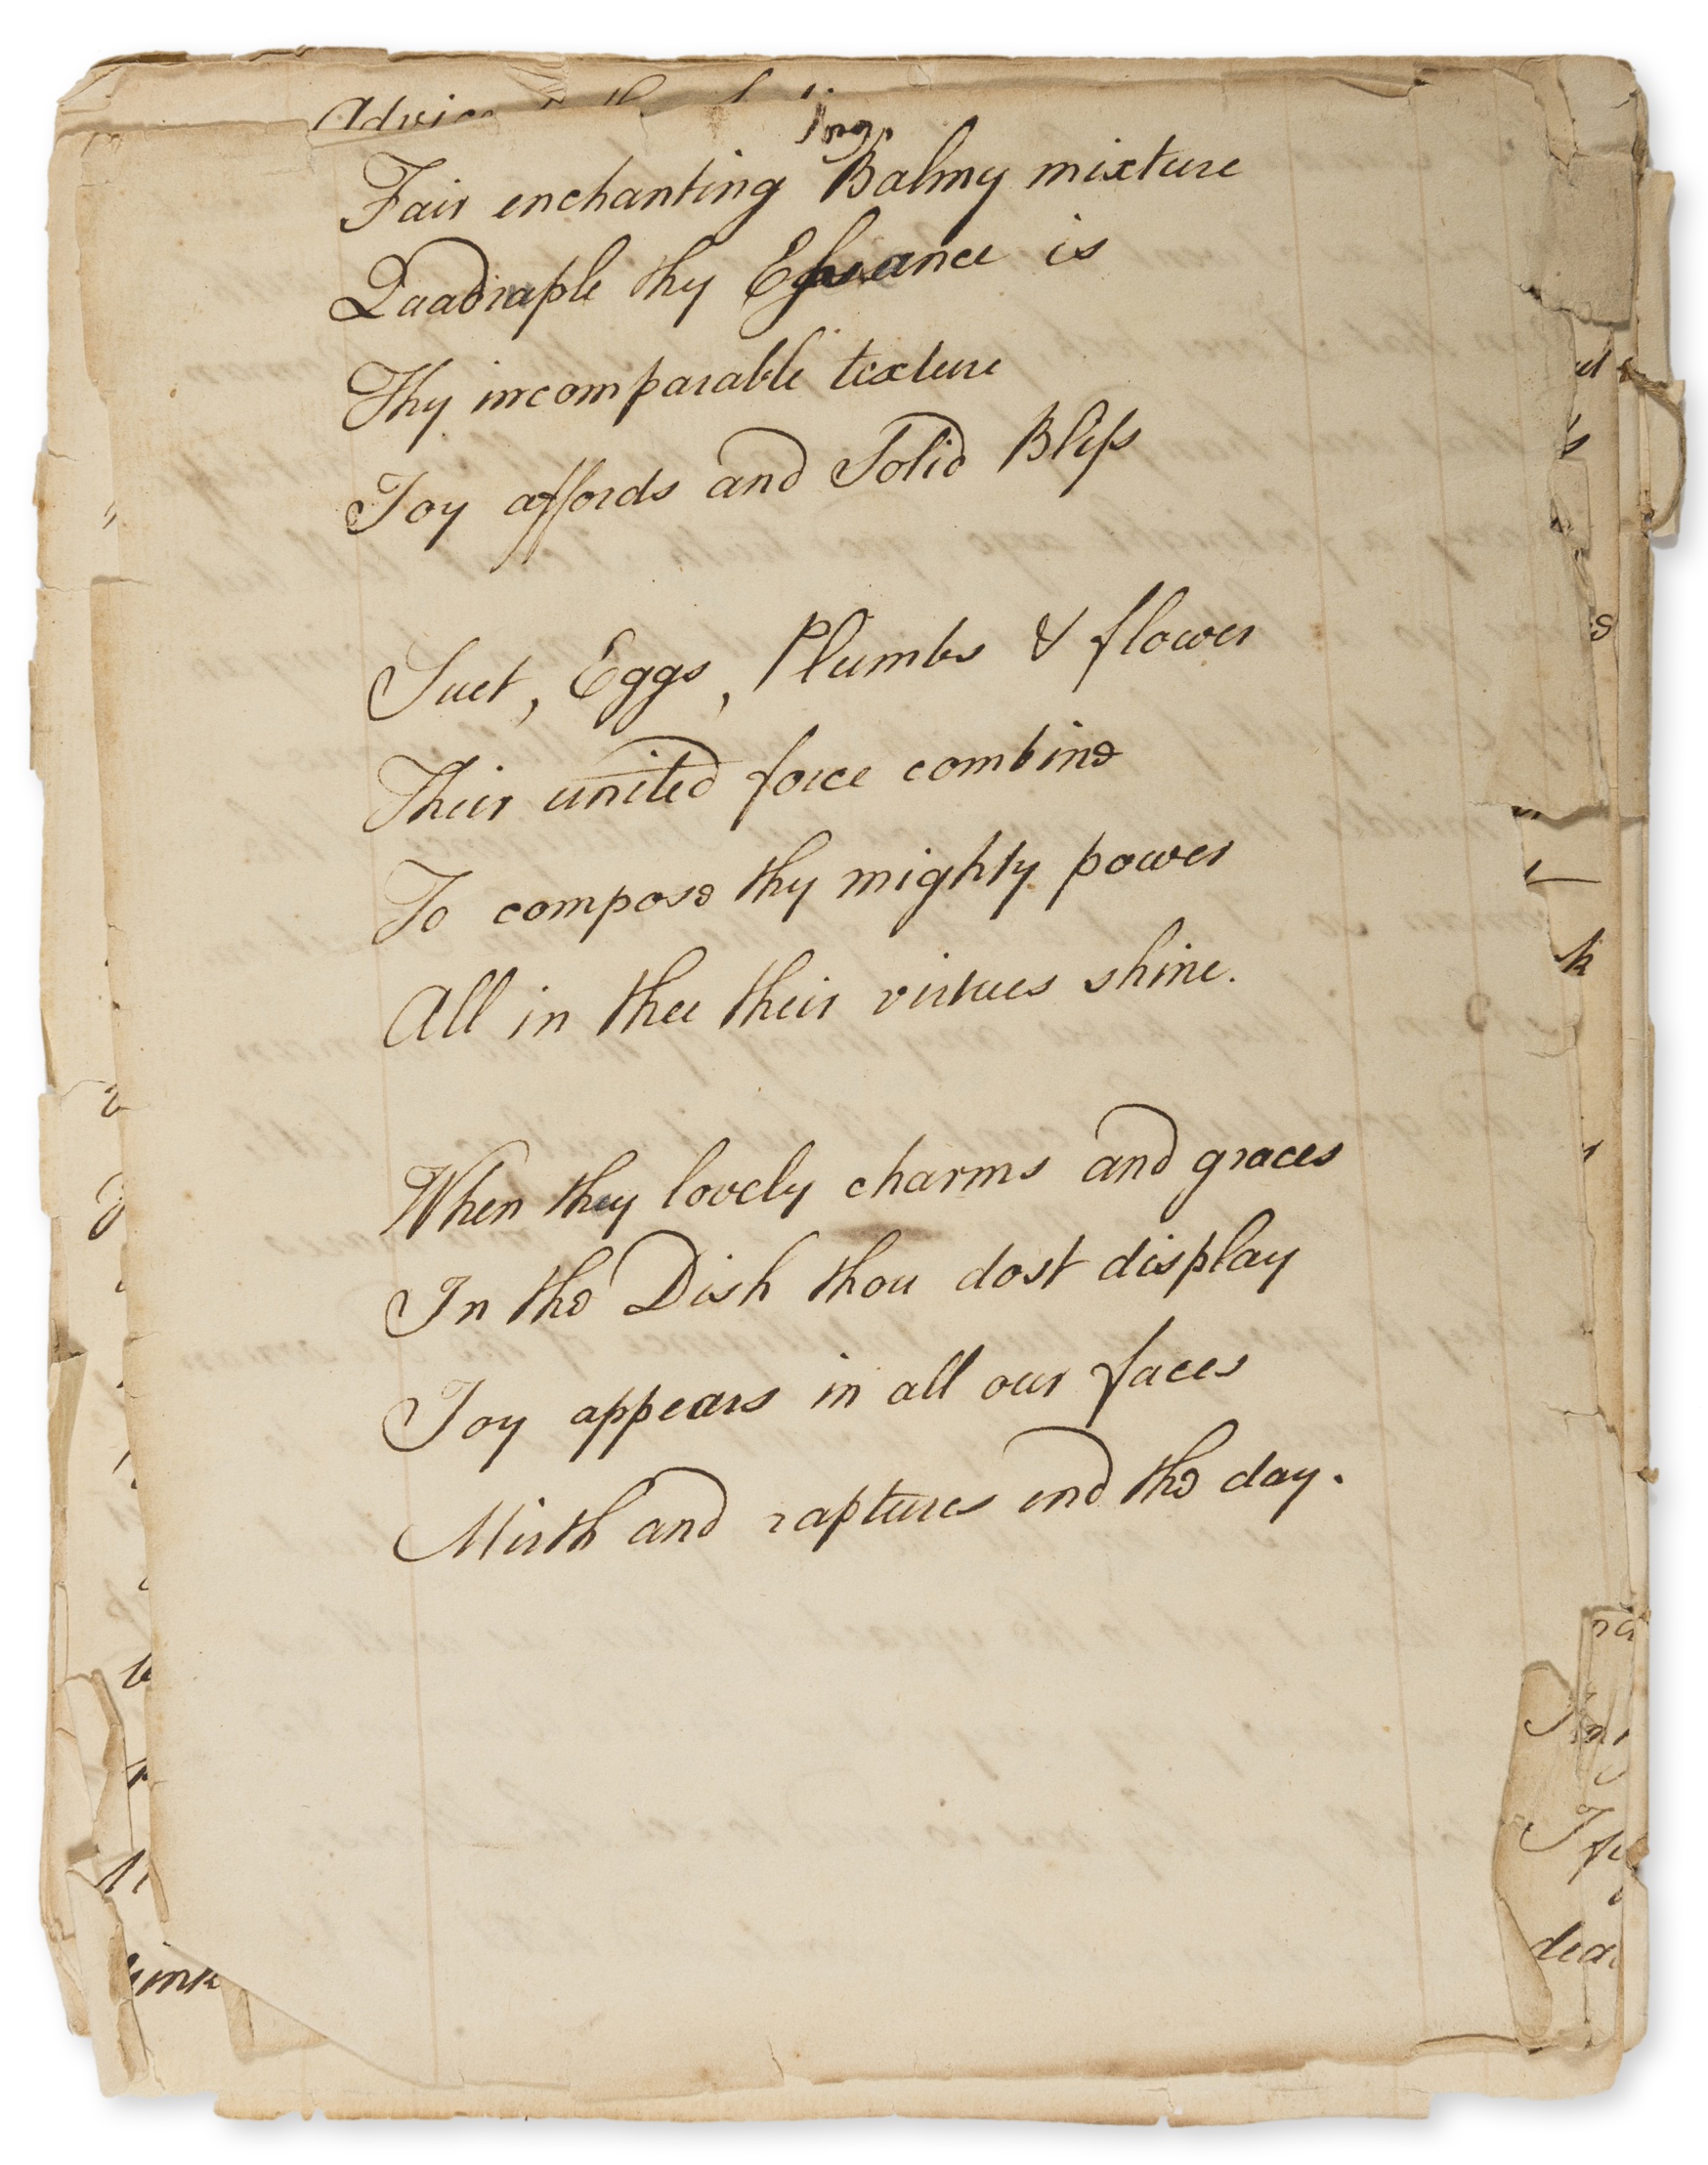 Advice
Fair enchanting Balmy mixture
Quadruple thy Essance is
Thy incomparable texture
Joy affords and Solid Bliss
Suet, Eggs, Plumbs & flower
Their united force combine
To compose thy mighty power
All in thee their virtues shine.
When thy lovely charms and graces
In the Dish thou dost display
Joy appears in all our faces
Mirth and raptures end the day.